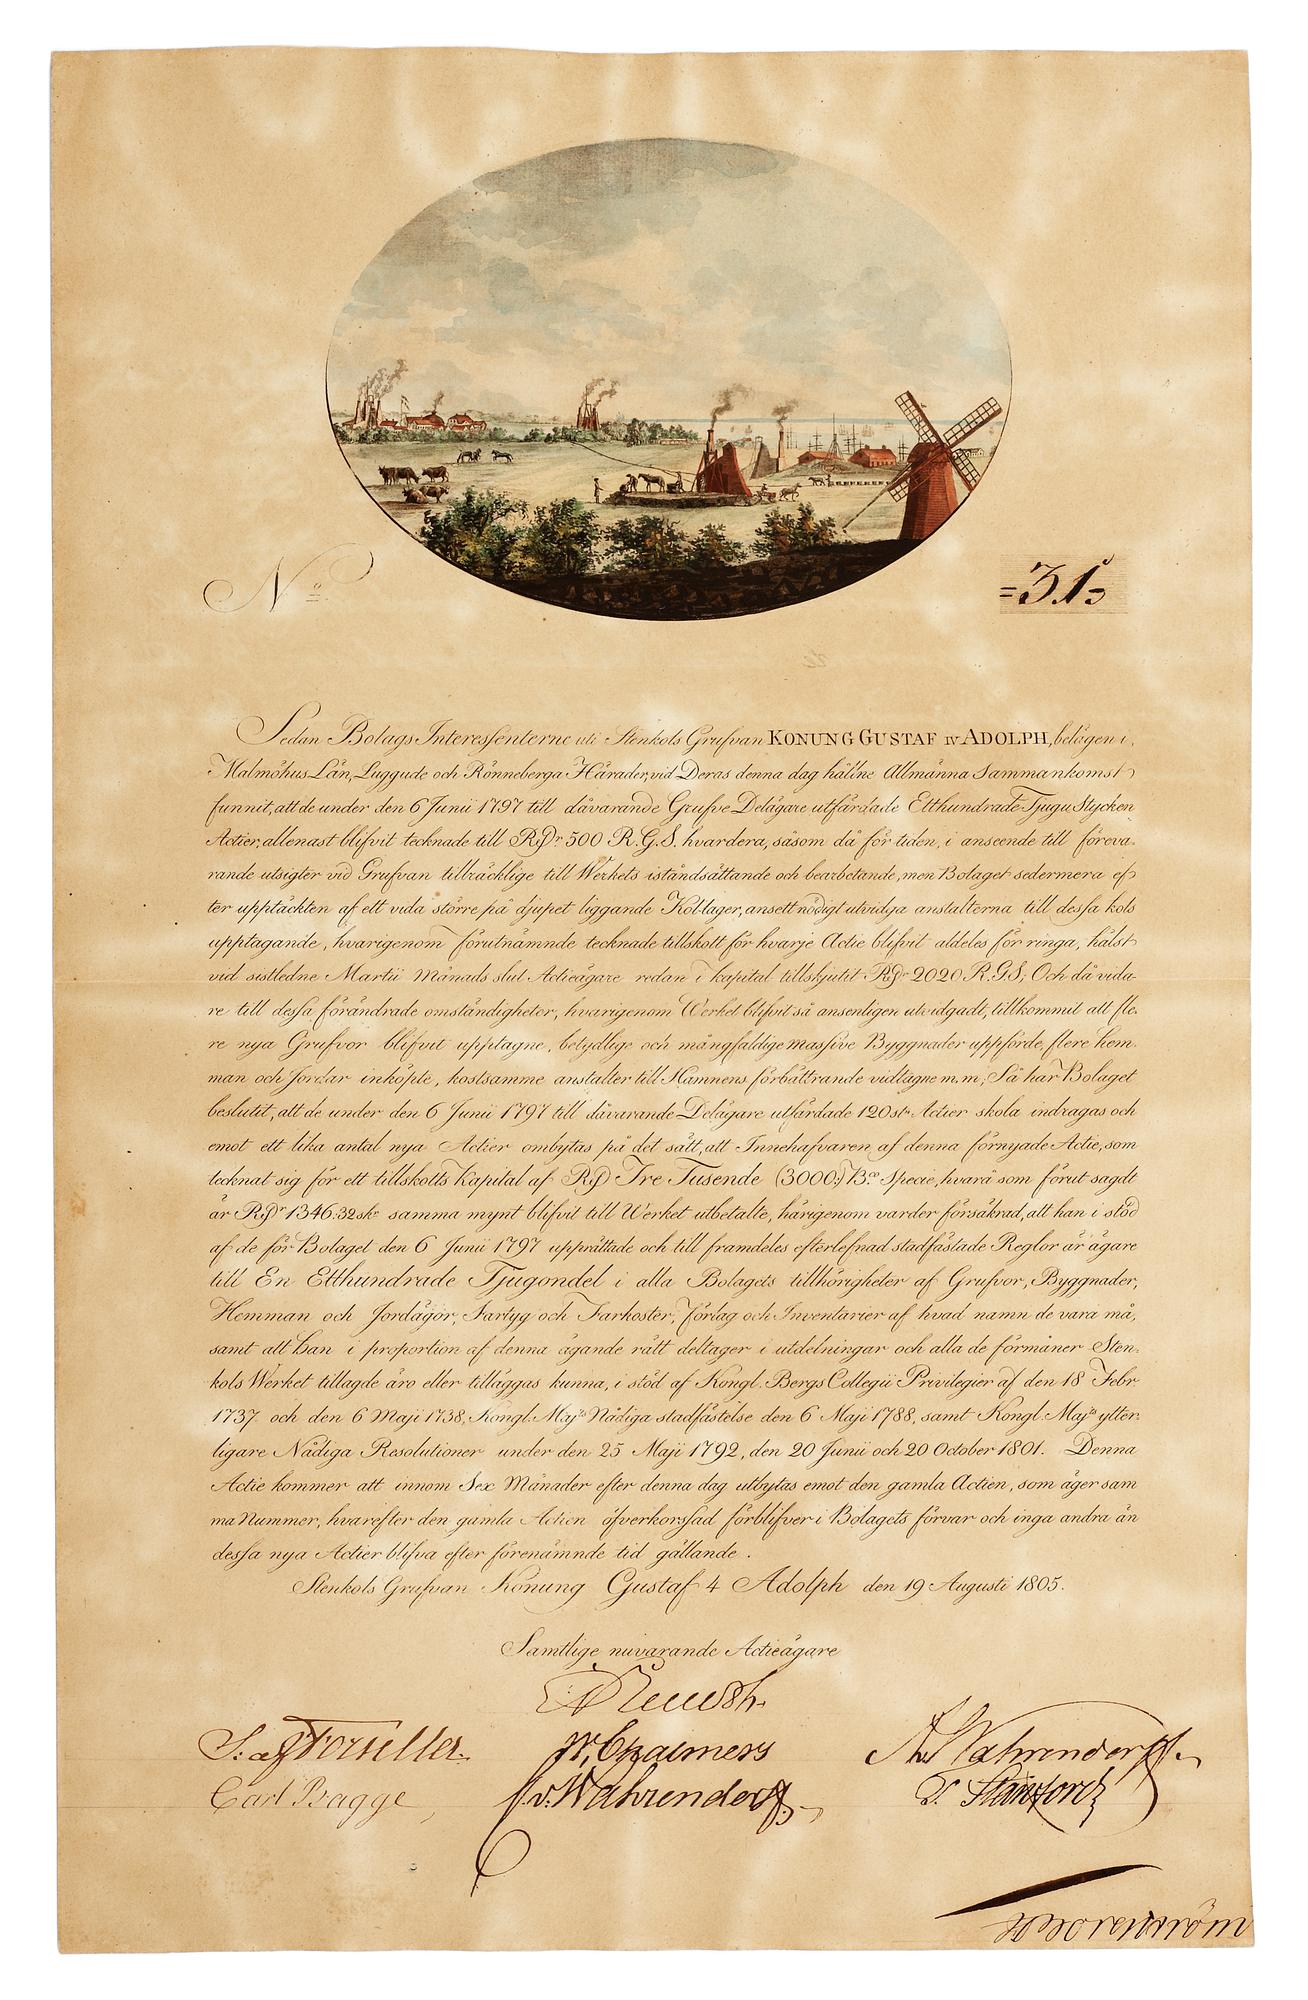 No
=31=
Sedan Bolags Interessenterne uti Stenkols Grufvan KONUNG GUSTAF IV ADOLPH, belägen i
Malmöhus Län, Luggude och Rönneberga Härader, vid Deras denna dag hållne Allmänna Sammankomst
funnit, att de under den 6 Junii 1797 till dåvarande Grufve Delägare utfärdade Etthundrade Tjugu Stycken
Actier, allenast blifvit tecknade till RDr 500 R.G.S. hvardera, såsom då för tiden, i anseende till föreva-
rande utsigter vid Grufvan tillräcklige till Werkets iståndsättande och bearbetande, men Bolaget sedermera ef-
ter upptäckten af ett vida större på djupet liggande Kol-lager, ansett nödigt utvidga anstalterna till dessa kols
upptagande, hvarigenom förutnämnde tecknade tillskott för hvarje Actie blifvit aldeles för ringa, hälst
vid sistledne Martii Månads slut Actieägare redan i kapital tillskjutit RDr 2020 R.G.S; Och då vida-
re till dessa förändrade omständigheter, hvarigenom Werket blifvit så ansenligen utvidgadt, tillkommit att fle-
re nya Grufvor blifvit upptagne, betydlige och mångfaldige massive Byggnader uppförde, flere hem-
man och Jordar inköpte, kostsamme anstalter till Hamnens förbättrande vidtagne m.m; Så har Bolaget
beslutit, att de under den 6 Junii 1797 till dåvarande Delägare utfärdade 120 st. Actier skola indragas och
emot ett lika antal nya Actier ombytas på det sätt, att Innehafvaren af denna förnyade Actie, som
tecknat sig för ett tillskotts Kapital af RD Tre Tusende (3000:) Bco Specie, hvarå som förut sagdt
är RDr 1346:32 sk. samma mynt blifvit till Werket utbetalte, härigenom varder försäkrad, att han i stöd
af de för Bolaget den 6 Junii 1797 upprättade och till framdeles efterlefnad stadfästade Reglor är ägare
till En Etthundrade Tjugondel i alla Bolagets tillhörigheter af Grufvor, Byggnader,
Hemman och Jordägor, Fartyg och Farkoster, Förlag och Inventarier af hvad namn de vara må,
samt att han i proportion af denna ägande rätt deltager i utdelningar och alla de förmåner Sten-
kols Werket tillagde äro eller tilläggas kunna, i stöd af Kongl. Bergs Collegii Privilegier af den 18 Febr.
1737. och den 6 Maji 1738, Kongl. Maj:ts Nådiga stadfästelse den 6 Maji 1788, samt Kongl. Maj:ts ytter-
ligare Nådiga Resolutioner under den 25 Maji 1792, den 20 Junii och 20 October 1801. Denna
Actie kommer att innom Sex Månader efter denna dag utbytas emot den gamla Actien, som äger sam
ma Nummer, hvarefter den gamla Actien öfverkorssad förblifver i Bolagets förvar och inga andra än
dessa nya Actier blifva efter förenämnde tid gällande.
Stenkols Grufvan Konung Gustaf 4 Adolph den 19 Augusti 1805.
Samtlige nuvarande Actieägare
S: af Forselles. W. Chalmers A. v. Wahrendorff
Carl Bagge v. Wahrendorff T. Stawford